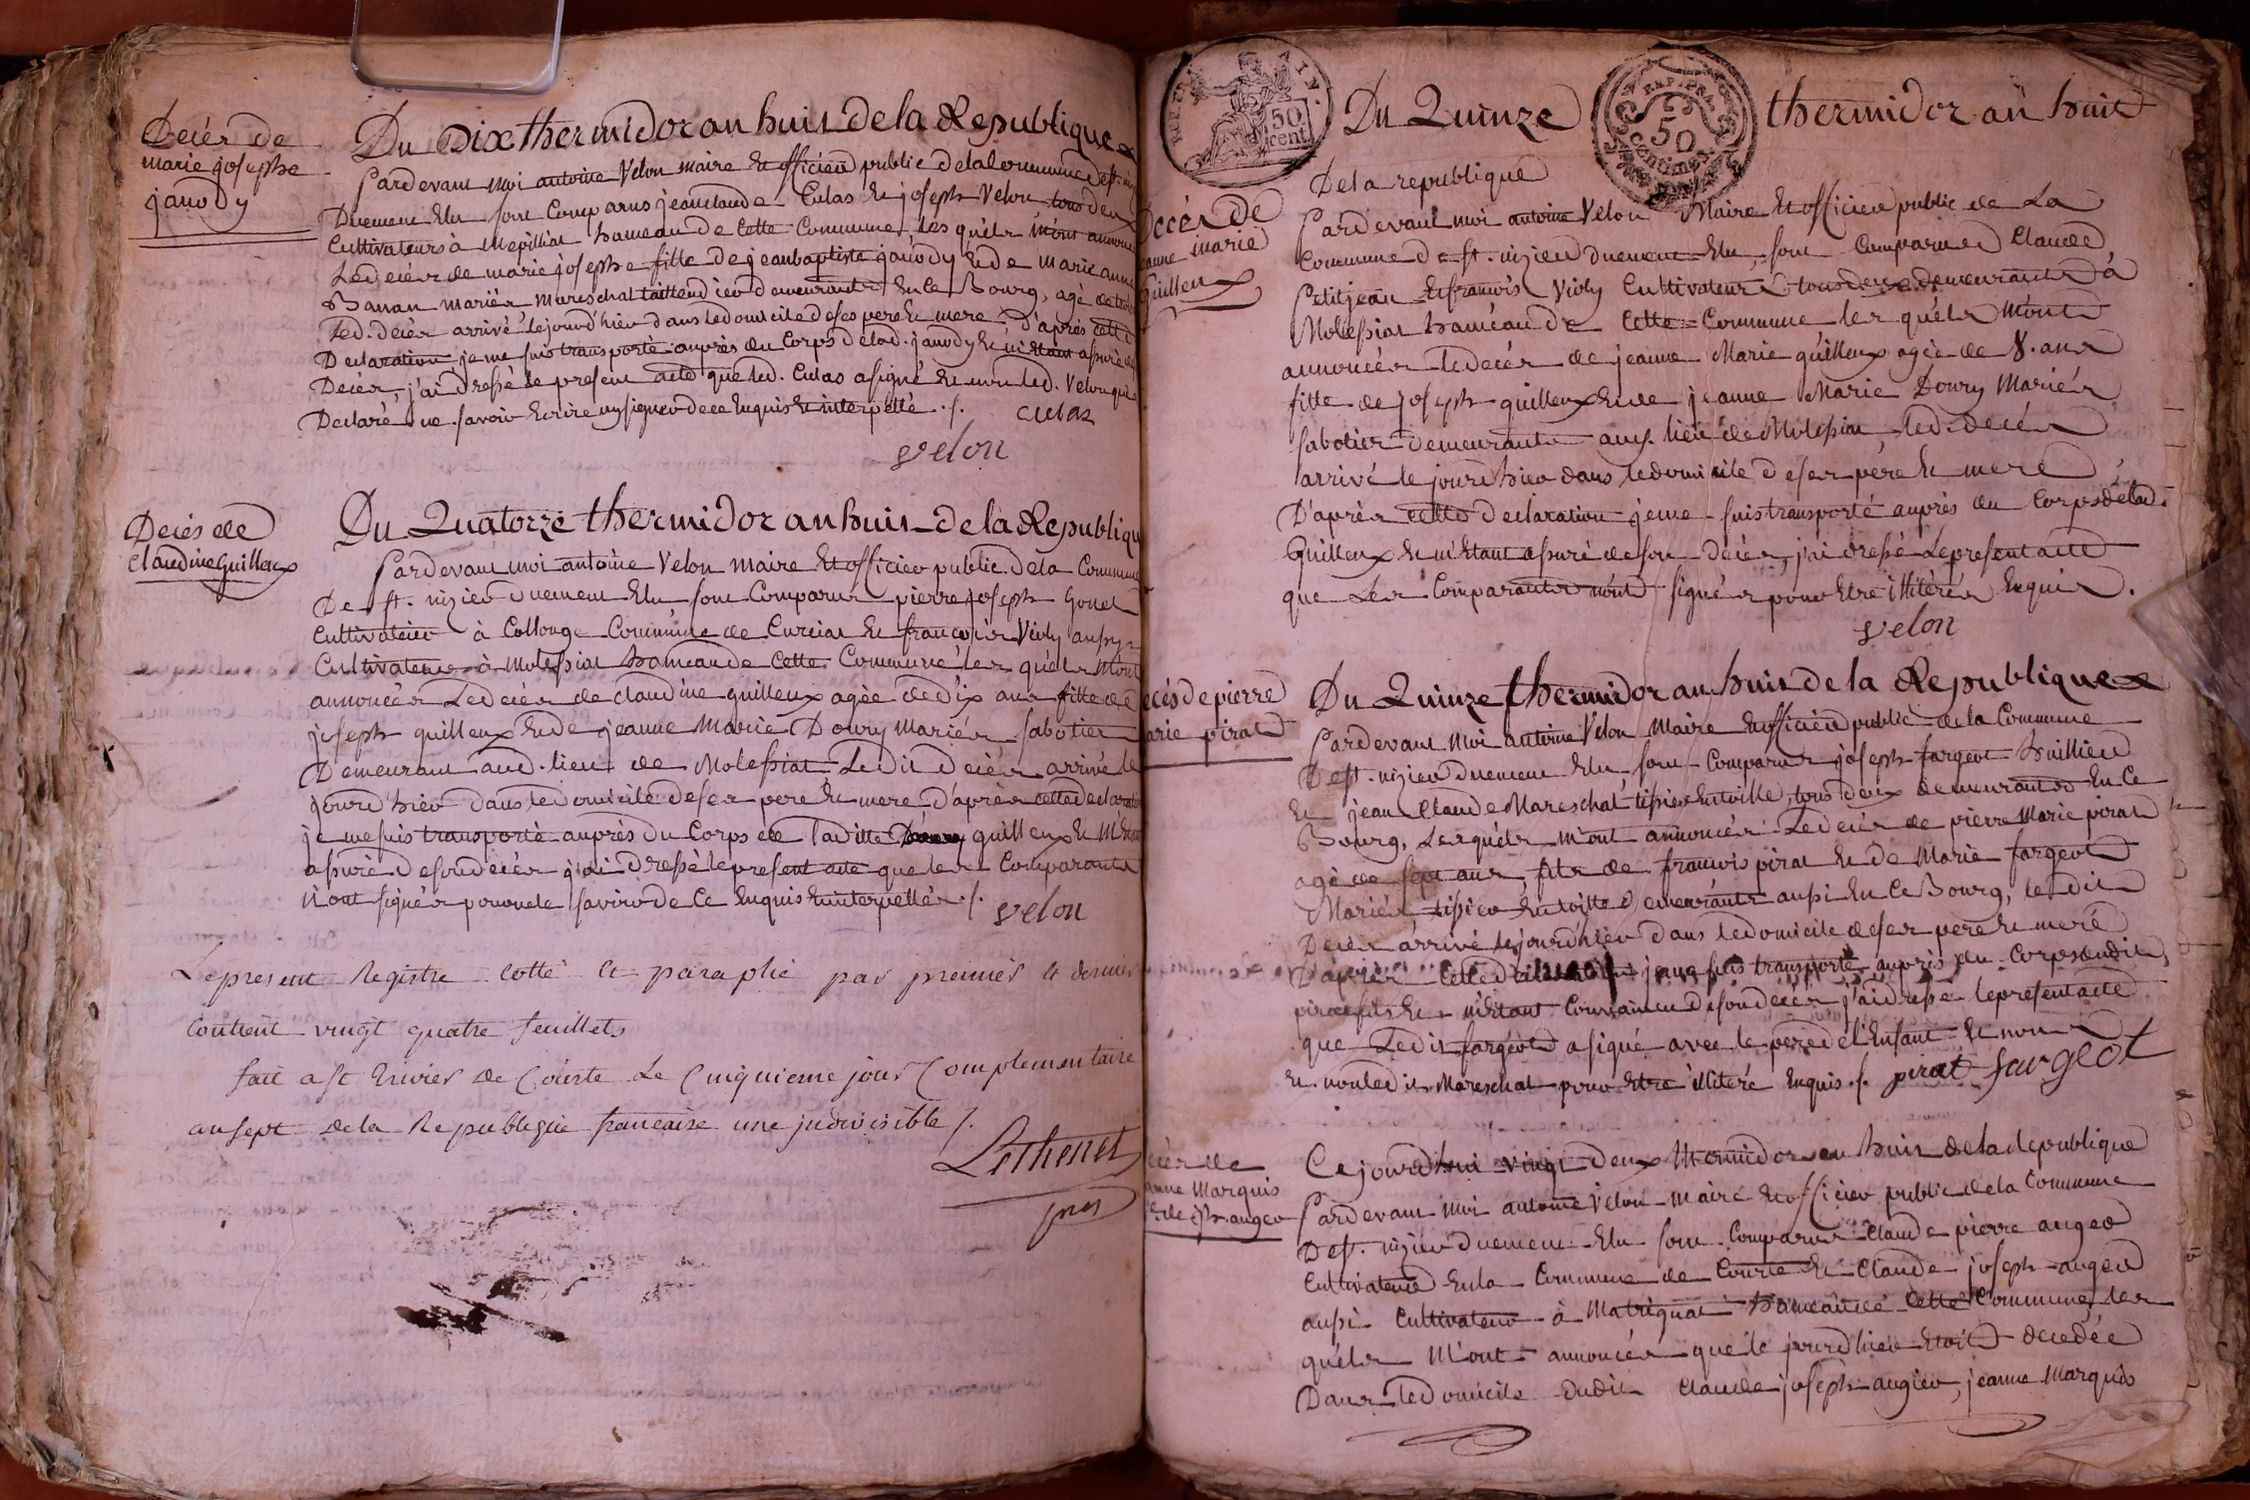 Décès de
marie josephe
janody
Du Dix thermidor an huit de la Republique
Pardevant moi antoine Velon maire et officier public de la Commune de st. niz
Duement Elu sont Comparus jean claude Culas et joseph Velon tous deux
Cultivateurs à Mepilliat hameau de Cette Commune, les quéls m'ont annoncé
Le decés de marie josephe fille de jean baptiste janody et de marie anne
Banan mariés mareschal taillendier demeurants En Ce Bourg, agé de
led. decés arrivé le jourd'hier dans le domicile de ses pere et mere, d'aprés cette
Declaration je me suis transporté auprès du Corps de lad. janody et m'étant assuré de
Decés, j'ai dressé le present acte que led. Culas a signé et non led. Velon qui a
Declaré ne savoir Ecrire ny signer de ce Enquis et interpellé ./.
culas
velon
Decés de
Claudine Guilleux
Du Quatorze thermidor an huit de la Republique
Pardevant moi antoine Velon maire Et officier public De la Commune
De st. nizier duement Elu sont Comparus pierre joseph Gonet
Cultivateur à Collonge Commune de Curciat et françois Vivly aussy
Cultivateur à Molessiat hameau de Cette Commune les quéls m'ont
annoncés Le decés de claudine guilleux agée de dix ans fille de
joseph guilleux et de jeanne Marie Doury Mariés Sabotier
Demeurant aud. lieu de Molessiat Le dit decés arrivé le
jourd'hier dans le domicile de ses pere et mere d'après cette declaration
je me suis transporté auprés du Corps de Laditte guilleux et m'étant
assuré de son decés j'ai dressé le present acte que les Comparants
n'ont signés pour ne le savoir de Ce Enquis et interpellés ./.
velon
Le present Registre Cotté et paraphé par premier et dernier
Contient vingt quatre feuillets
fait a st trivier de Courte Le Cinquieme jour Complementaire
an sept de la Republique française une indivisible ./.
Lethenet
pres
REP. FRA.
50
cent.
REP. FRA.
50
Centimes
Du Quinze thermidor an huit
De la republique
Décés De
jeanne marie
Guilleux
Pardevant moi antoine Velon Maire Et officier public de La
Commune de st. nizier duement Elu, sont Comparus Claude
Petitjean Et françois Vivly Cultivateurs tous deux demeurants à
Molessiat hameau de Cette Commune les quéls m'ont
annoncés le decés de jeanne Marie guilleux agée de 8. ans
fille de joseph guilleux et de jeanne Marie Doury Mariés
sabotier demeurants aus. lieu de Molessiat, led. decés
arrivé le jourd'hier dans le domicile de ses pére et mere
D'après cette declaration je me suis transporté auprés du Corps de lad.
Guilleux et m'étant assuré de son decés, j'ai dressé Le present acte
que Les Comparants n'ont signés pour Etre illitérés Enquis.
velon
Decés de pierre
marie pirat
Du Quinze thermidor an huit de la Republique
Pardevant Moi antoine Velon Maire Et officier public de la Commune
De st. nizier Duement Elu sont Comparus joseph fargeot huillier
Et jean Claude Mareschal tissier En toille, tous deux demeurants En Ce
Bourg, Lesquéls m'ont annoncés Le decés de pierre Marie pirat
agé de sept ans, fils de francois pirat et de Marie fargeot
Mariés tissier En toille demeurants aussi En Ce Bourg, le dit
Decés arrivé le jourd'hier dans le domicile de ses pere et mere
D'après cette declaration je me suis transporté auprés du Corps dudit
pirat fils et m'étant Convaincu de son decés j'ai dressé le present acte
que Ledit fargeot a signé avec le pere de l'Enfant et non
Et non ledit Mareschal pour Etre illiteré Enquis ./. pirat fargeot
Decés de
jeanne Marquis
angev
Ce jourd'hui vingt deux thermidor an huit de la republique
Pardevant moi antoine Velon Maire Et officier public de la Commune
De st. nizier duement Elu sont Comparus Claude pierre anger
Cultivateur En la Commune de Courte et Claude joseph anger
aussi Cultivateur à Matrignat hameau de Cette Commune, les
quéls M'ont annoncés que le jourd'hier Etoit decedée
Dans le domicile dudit Claude joseph angier, jeanne Marquis